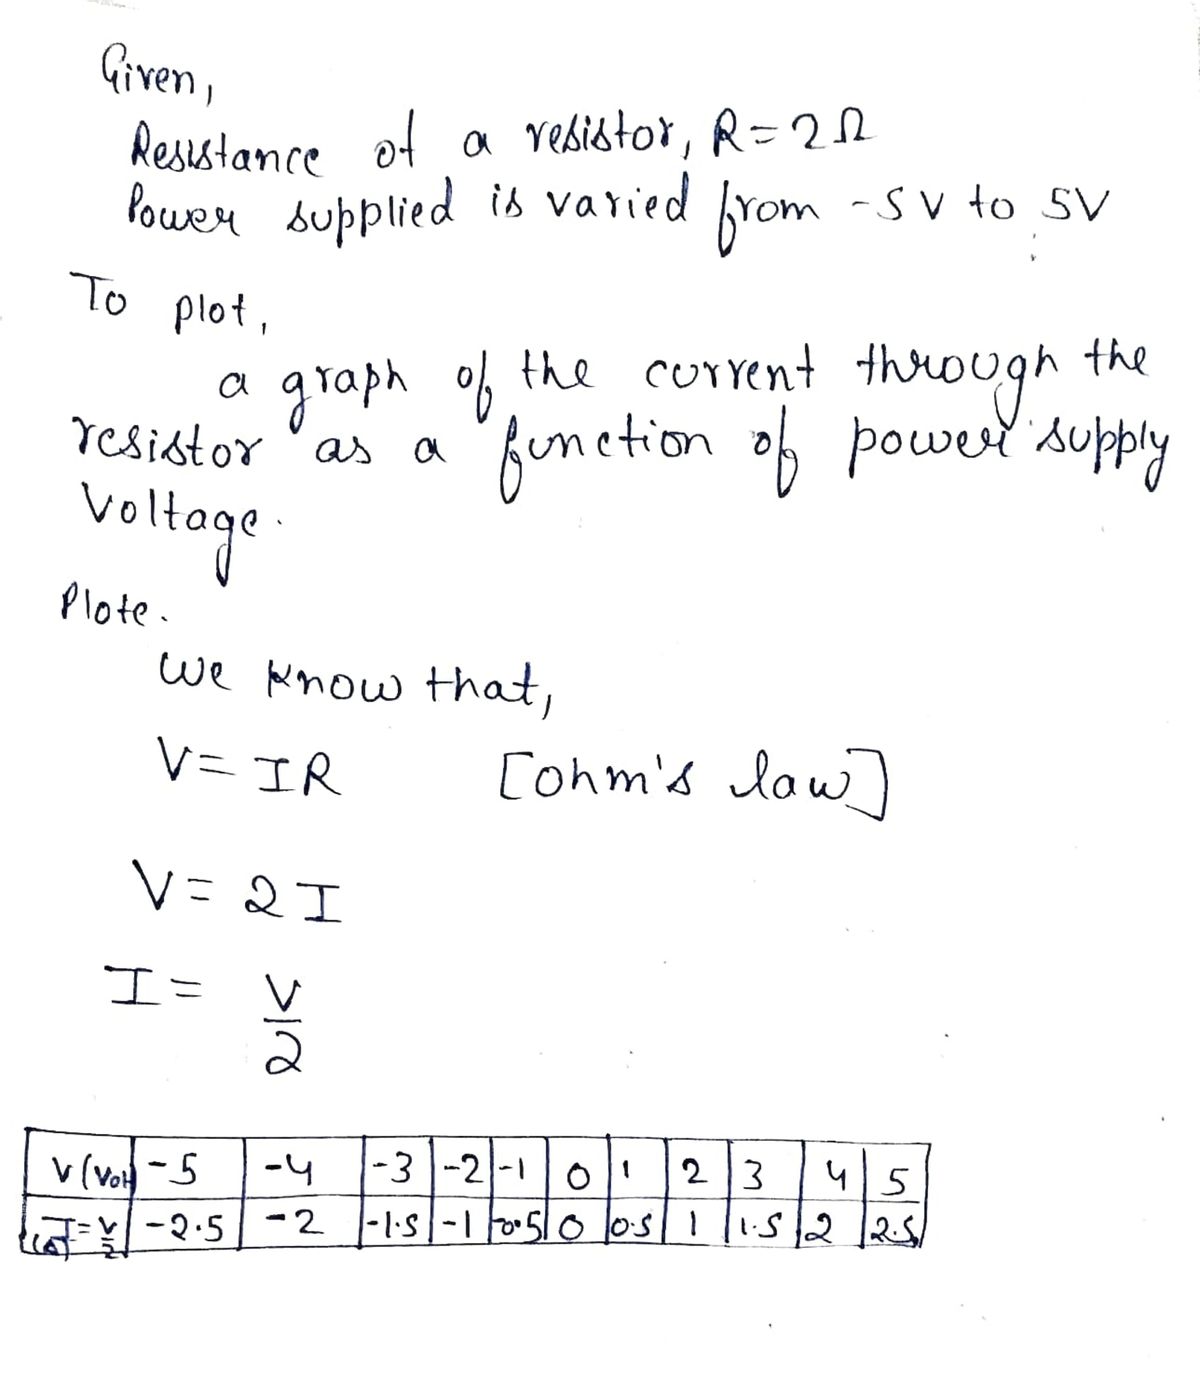 Given,
Resistance of a resistor, R=2Ω
Power supplied is varied from -5V to 5V
To plot,
a graph of the current through the
resistor as a function of power supply
Voltage.
Plote.
We know that,
V=IR [ohm's law]
V=2I
I= V/2
V(Volt) -5 -4 -3 -2 -1 0 1 2 3 4 5
I=V/2 -2.5 -2 -1.5 -1 -0.5 0 0.5 1 1.5 2 2.5